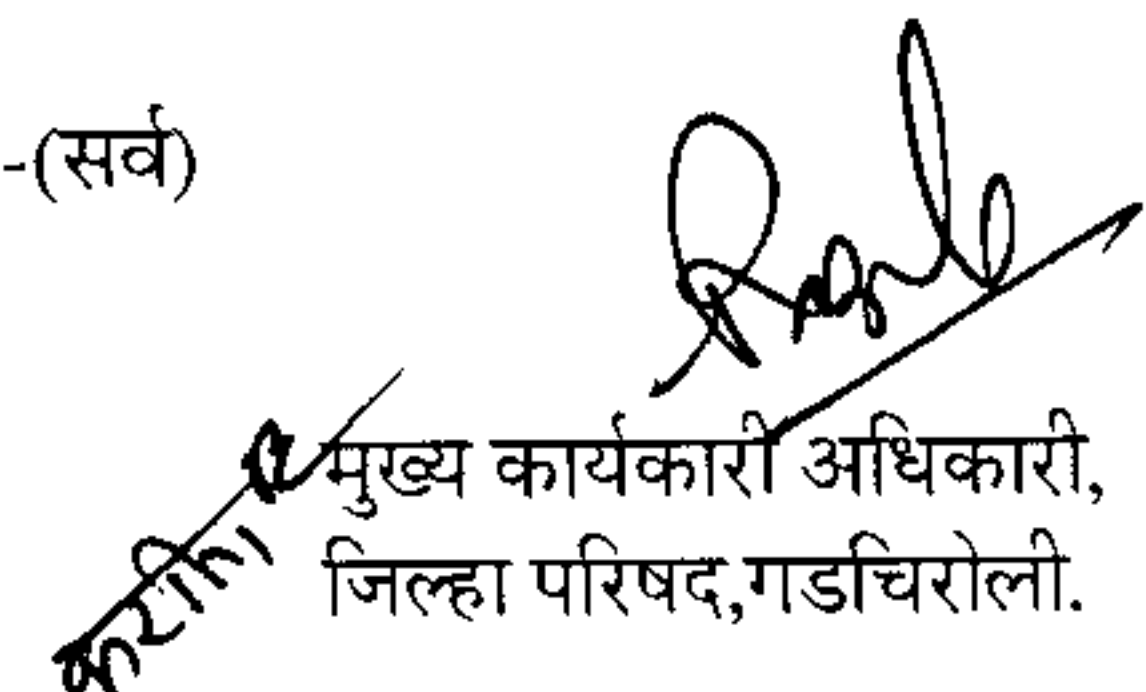 -(सर्व)
मुख्य कार्यकारी अधिकारी,
जिल्हा परिषद,गडचिरोली.
करीता